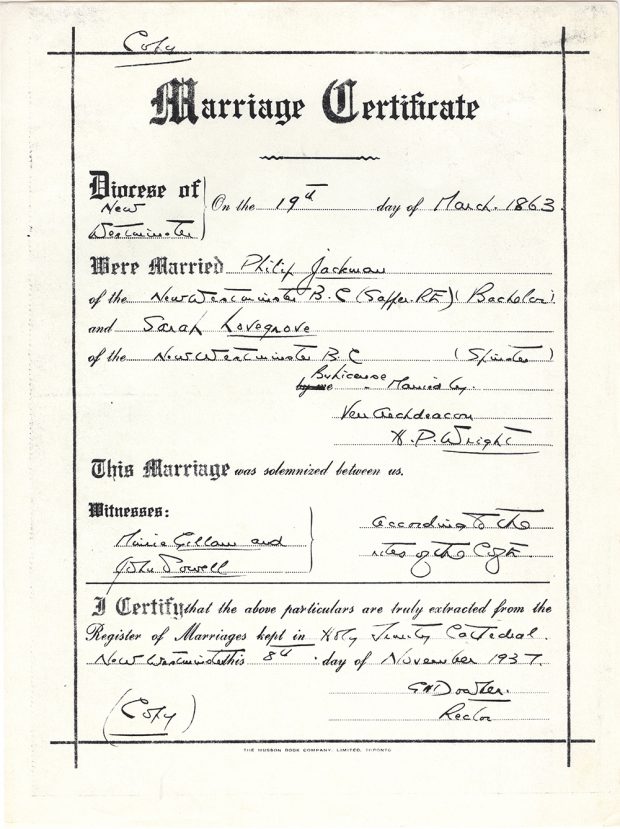 Copy
Marriage Certificate
Diocese of New Westminster
On the 19th day of March. 1863.
Were Married Philip Jackman
of the New Westminster B.C (Sapper. R.E) (Bachelor)
and Sarah Lovegrove
of the New Westminster B.C (Spinster)
by me By license - Married by.
Ven Archdeacon
H. P. Wright
This Marriage was solemnized between us.
Witnesses:
Minnie Gillan and
John Powell
according to the
rites of the C of E
I Certify that the above particulars are truly extracted from the
Register of Marriages kept in Holy Trinity Cathedral.
New Westminster this 8th day of November 1937.
Rector
(Copy)
THE MUSSON BOOK COMPANY, LIMITED, TORONTO